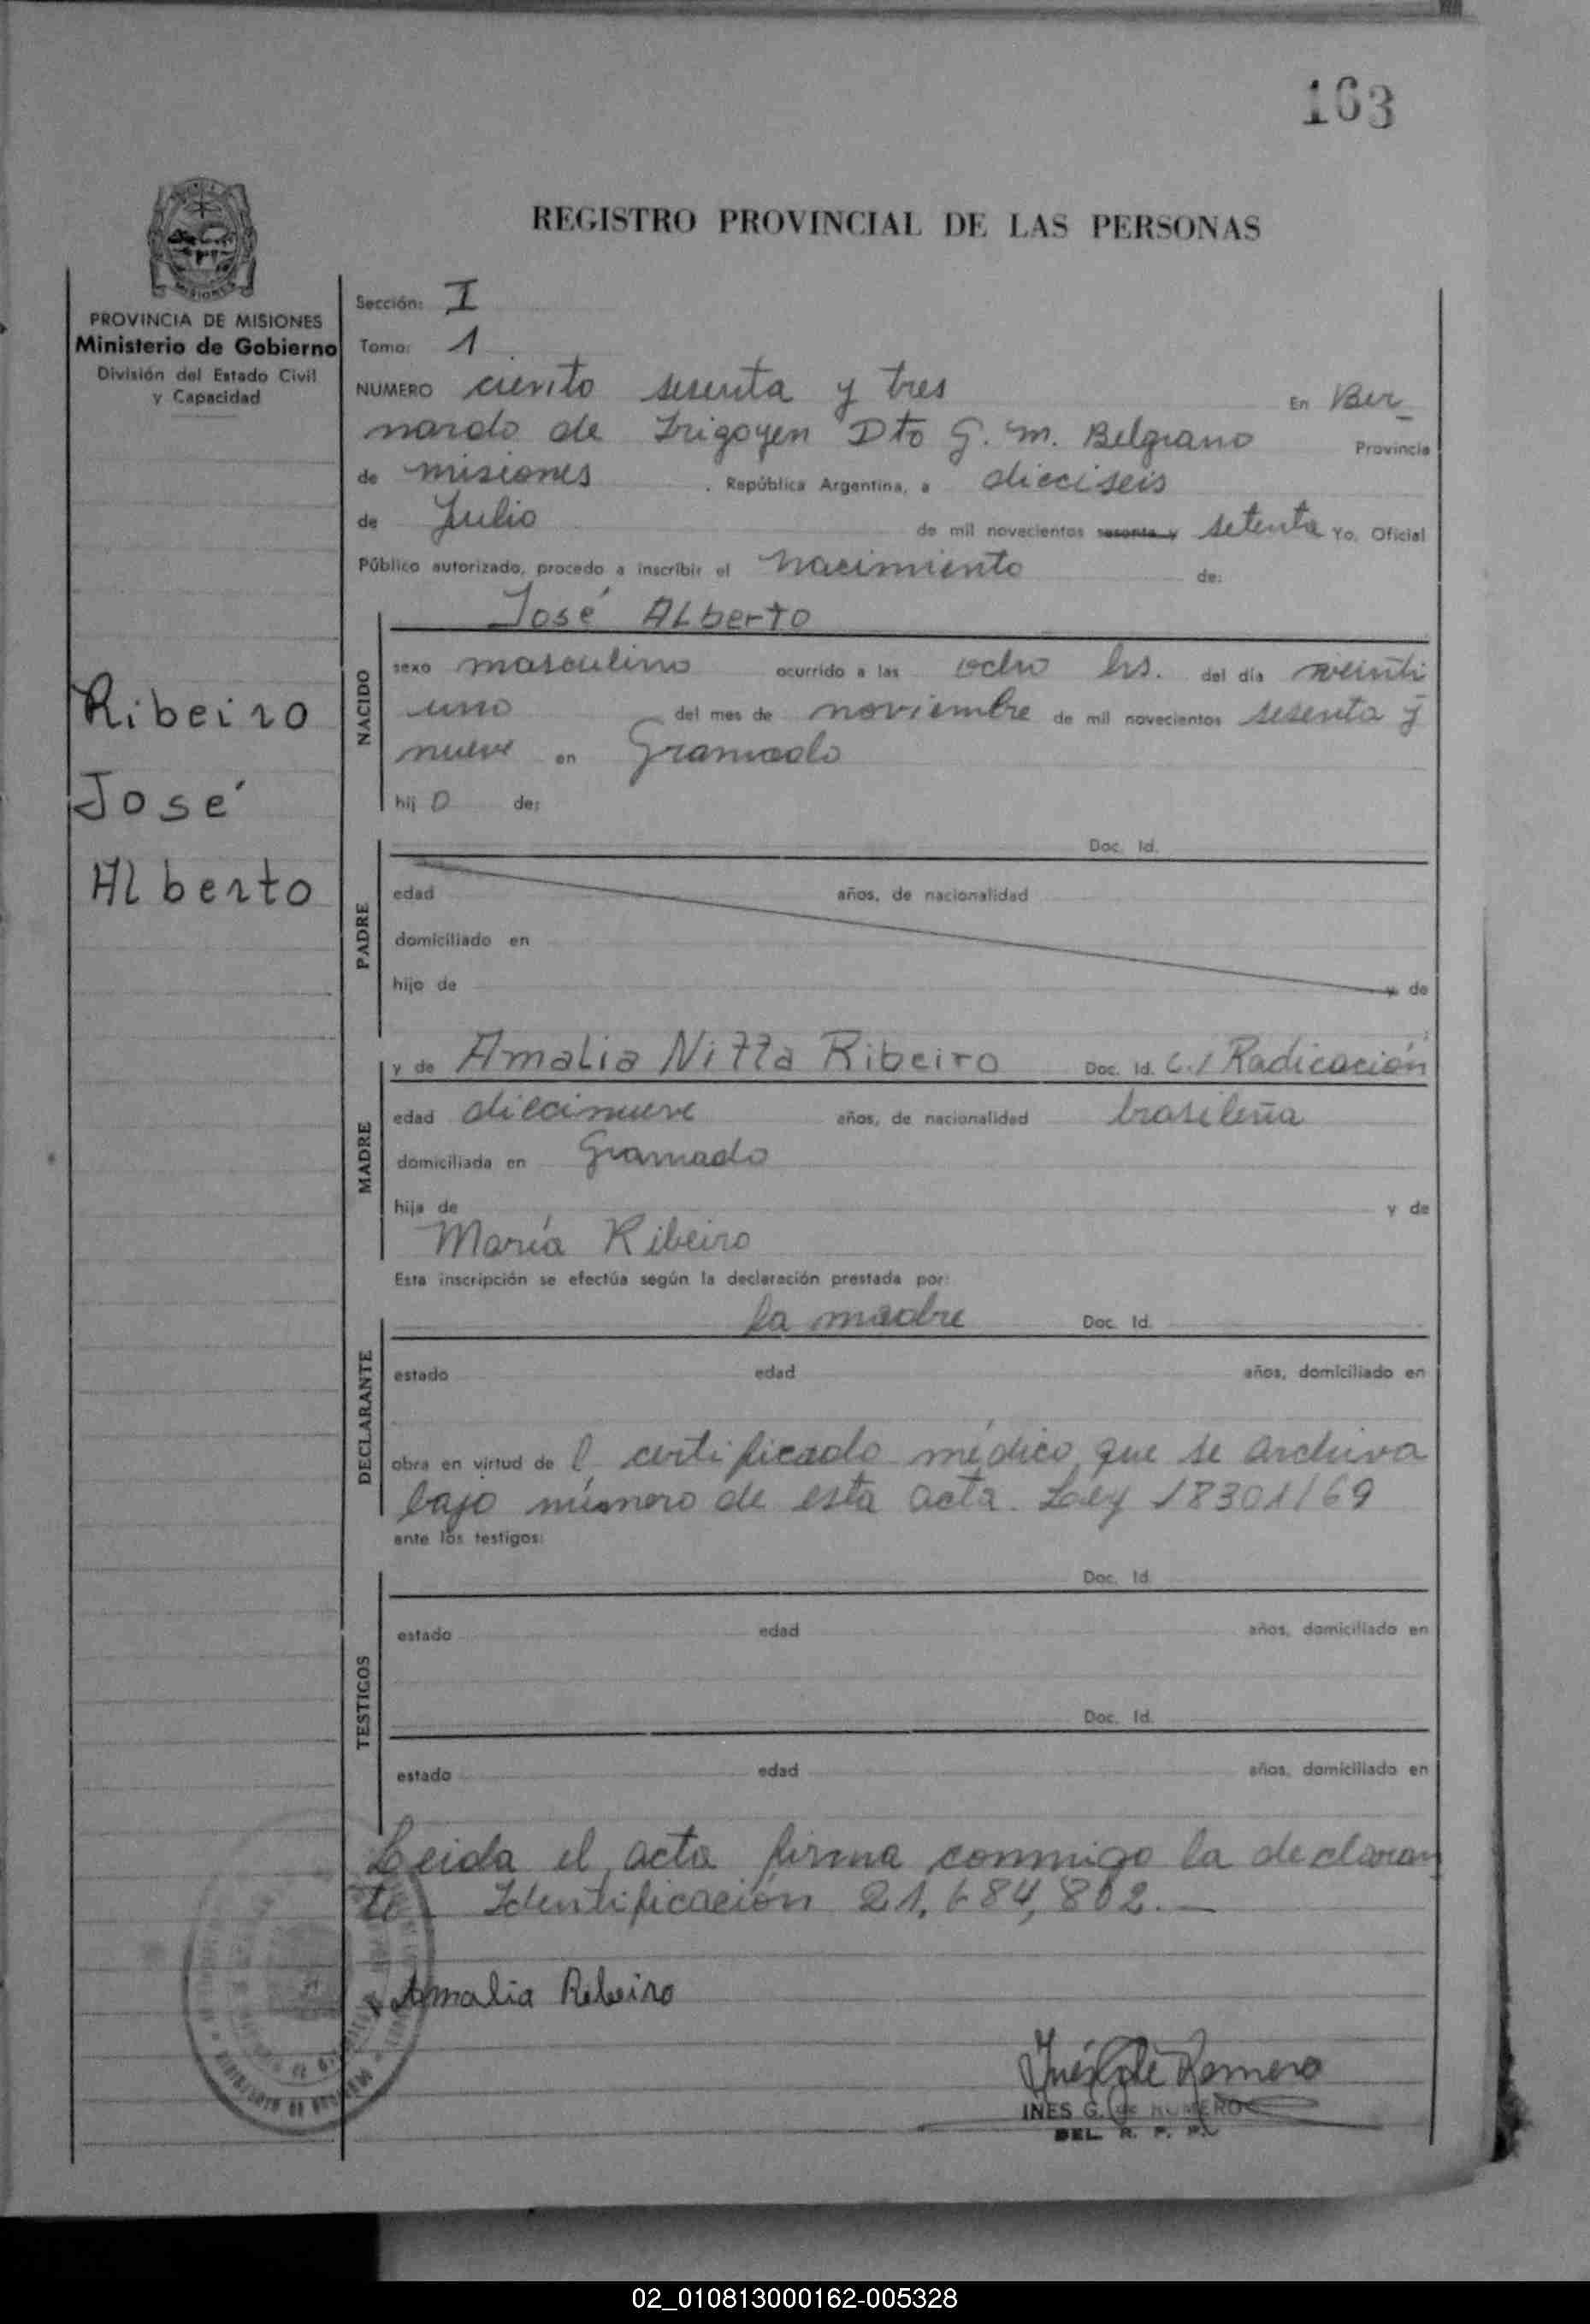 163
REGISTRO PROVINCIAL DE LAS PERSONAS
MISIONES
PROVINCIA DE MISIONES
Ministerio de Gobierno
División del Estado Civil
y Capacidad
Ribeiro
José
Alberto
Sección: I
Tomo: 1
NUMERO ciento sesenta y tres En Ber_
nardo de Irigoyen Dto G. M. Belgrano Provincia
de misiones . República Argentina, a dieciseis
de Julio de mil novecientos sesenta y setenta Yo, Oficial
Público autorizado, procedo a inscribir el nacimiento de:
José Alberto
NACIDO
sexo masculino ocurrido a las ocho hs. del día veinti
uno del mes de noviembre de mil novecientos sesenta y
nueve en Gramado
hij o de:
PADRE
Doc. Id.
edad años, de nacionalidad
domiciliado en
hijo de y de
MADRE
y de Amalia Ribeiro Doc. Id. C./ Radicación
edad diecinueve años, de nacionalidad brasileña
domiciliada en Gramado
hija de y de
María Ribeiro
Esta inscripción se efectúa según la declaración prestada por:
DECLARANTE
la madre Doc. Id.
estado edad años, domiciliado en
obra en virtud de l certificado médico que se archiva
bajo número de esta acta. Ley 18301/69
ante los testigos:
TESTIGOS
Doc. Id.
estado edad años, domiciliado en
Doc. Id.
estado edad años, domiciliado en
Leida el acta firma conmigo la declaran
te. Identificación 21,684,802.—
Amalia Ribeiro
Inés G de Romero
INES G. de ROMERO
DEL. R. P. P.
02_010813000162-005328